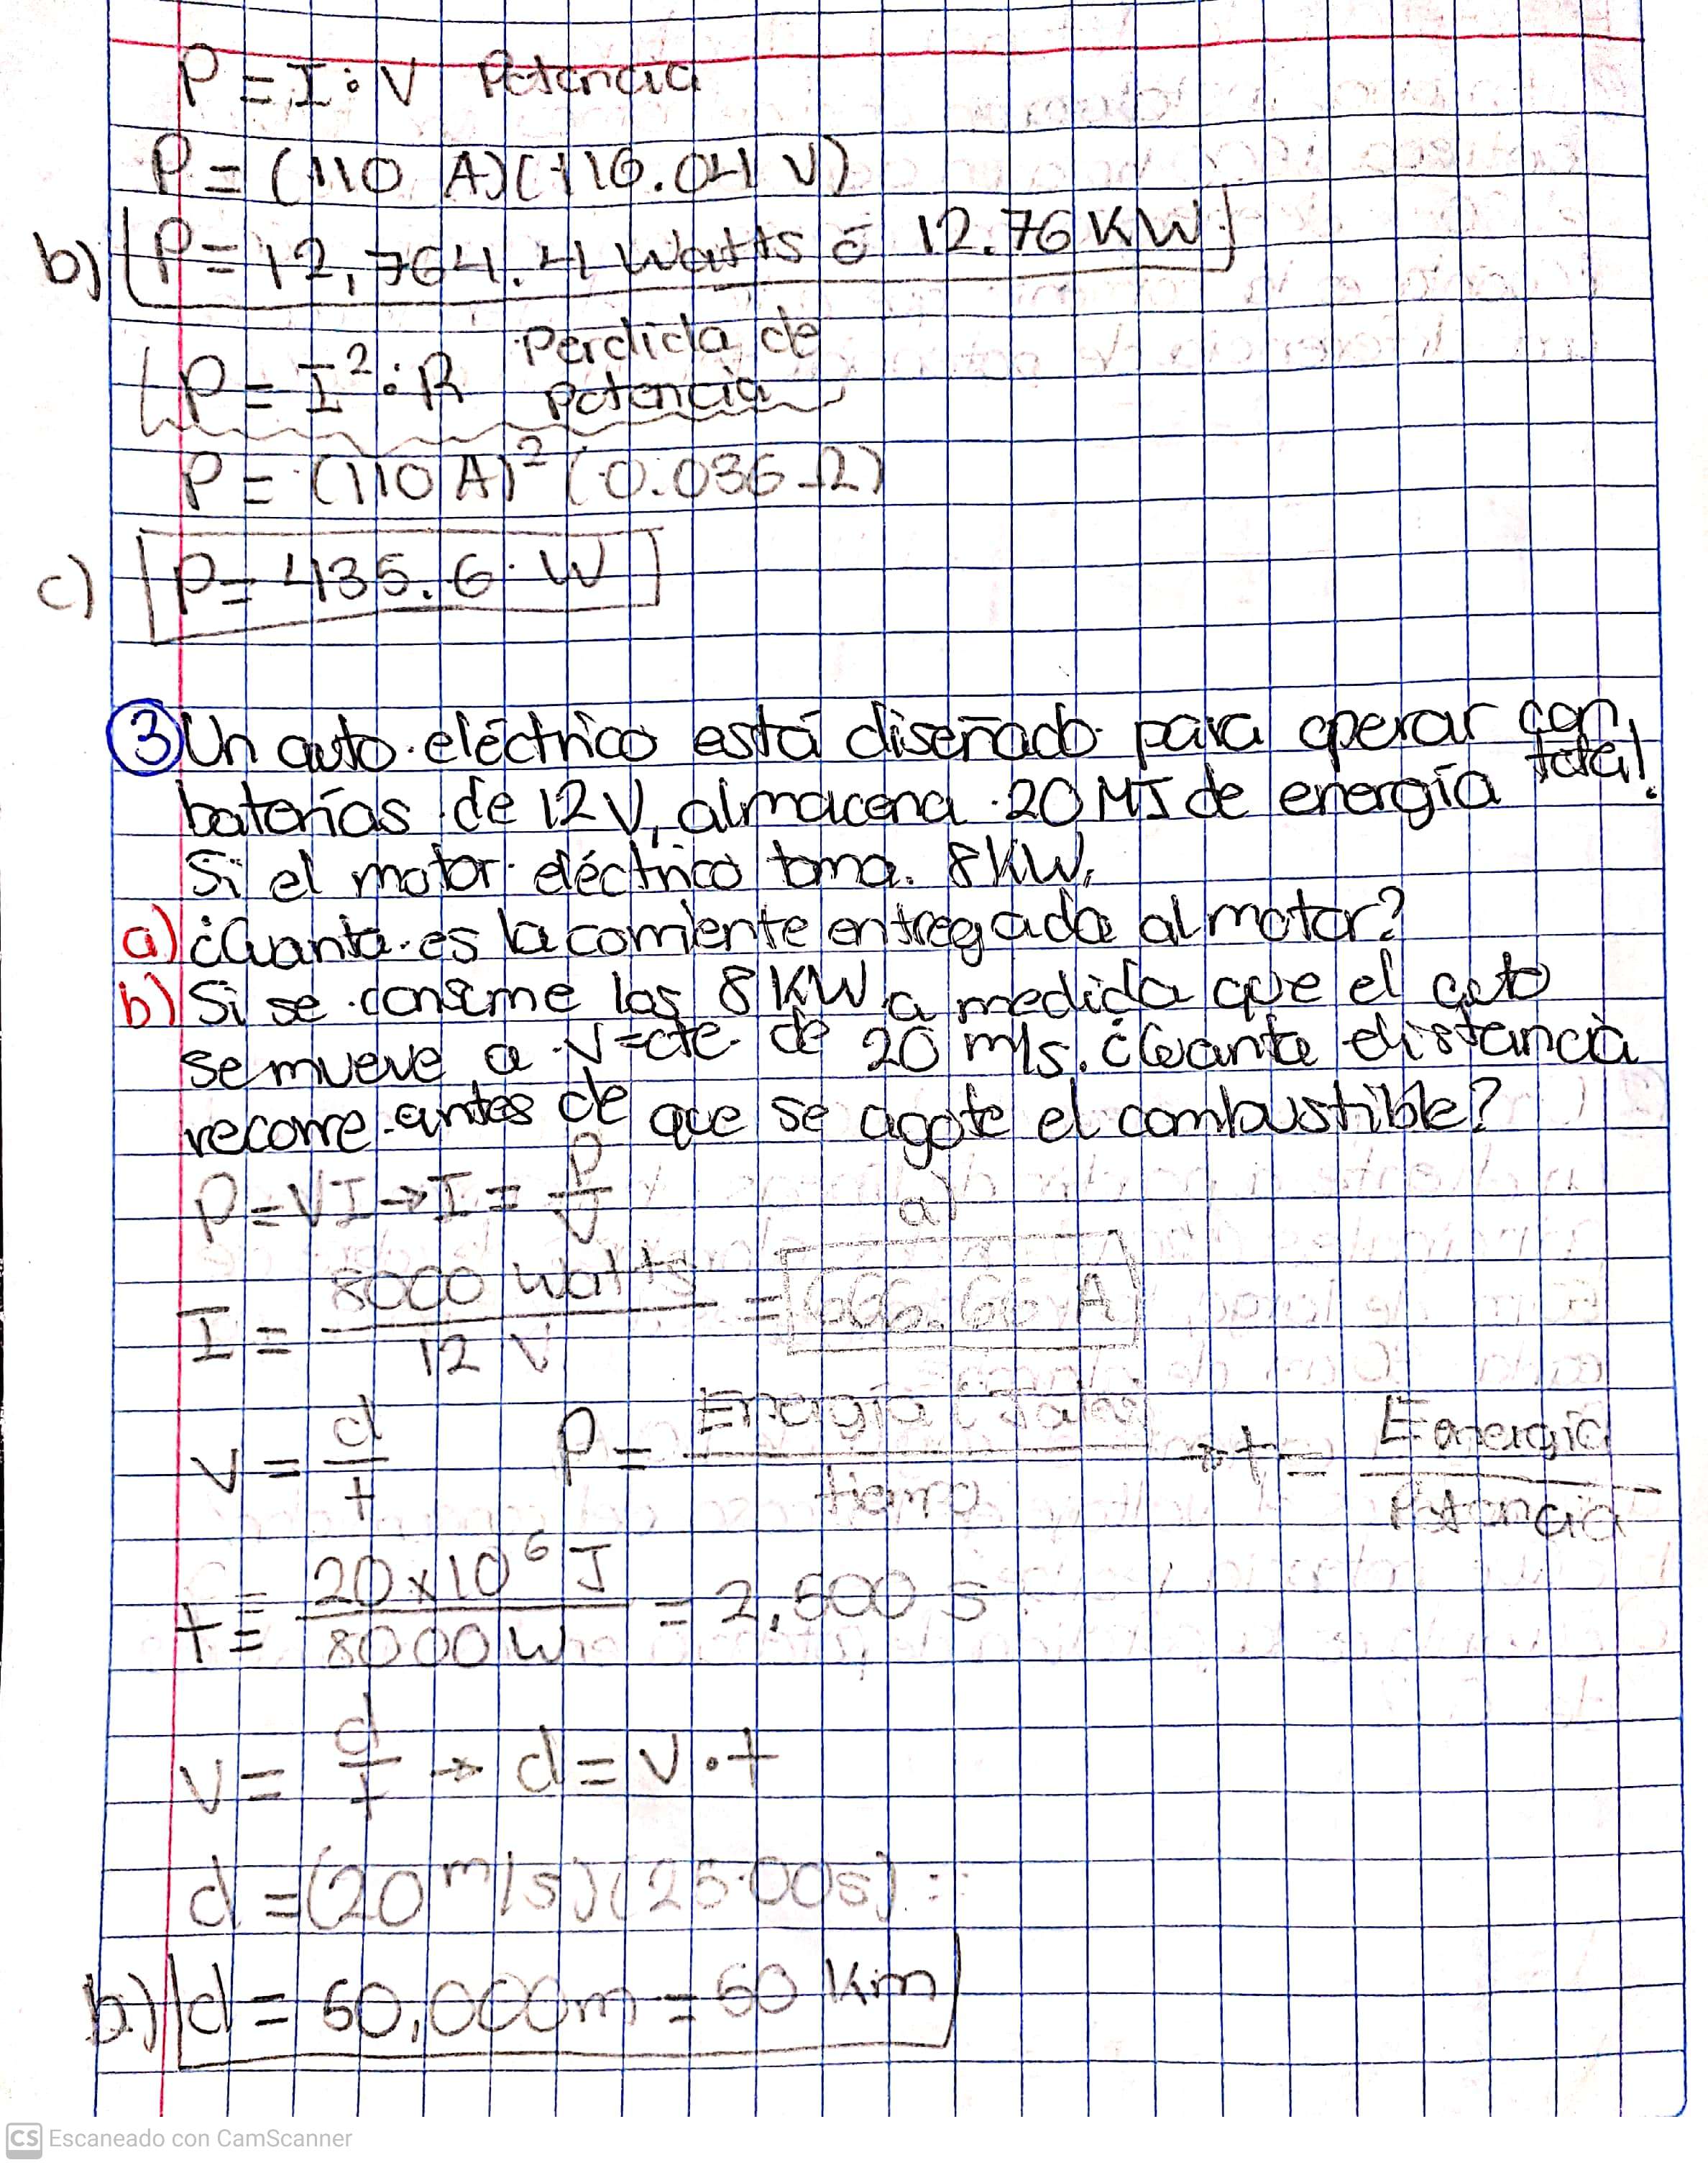 P = I · V Potencia
P = (110 A)(116.04 V)
b) P = 12,764.4 Watts ó 12.76 KW
P = I² · R Perdida de Potencia
P = (110 A)² (0.036 Ω)
c) P = 435.6 W
③ Un auto eléctrico está diseñado para operar con
baterías de 12 V, almacena 20 MJ de energía total.
Si el motor eléctrico toma 8 KW,
a) ¿Cuanta es la corriente entregada al motor?
b) Si se consume los 8 KW a medida que el auto
se mueve a V=cte de 20 m/s. ¿Cuanta distancia
recorre antes de que se agote el combustible?
P = VI → I = P/V
a)
I = 8000 Watts / 12 V = 666.66 A
v = d/t P = Energía Total / tiempo → t = Eenergía / Potencia
t = 20 x 10⁶ J / 8000 W = 2,500 s
v = d/t → d = v · t
d = (20 m/s)(2500s) =
b) d = 50,000 m = 50 Km
CS Escaneado con CamScanner